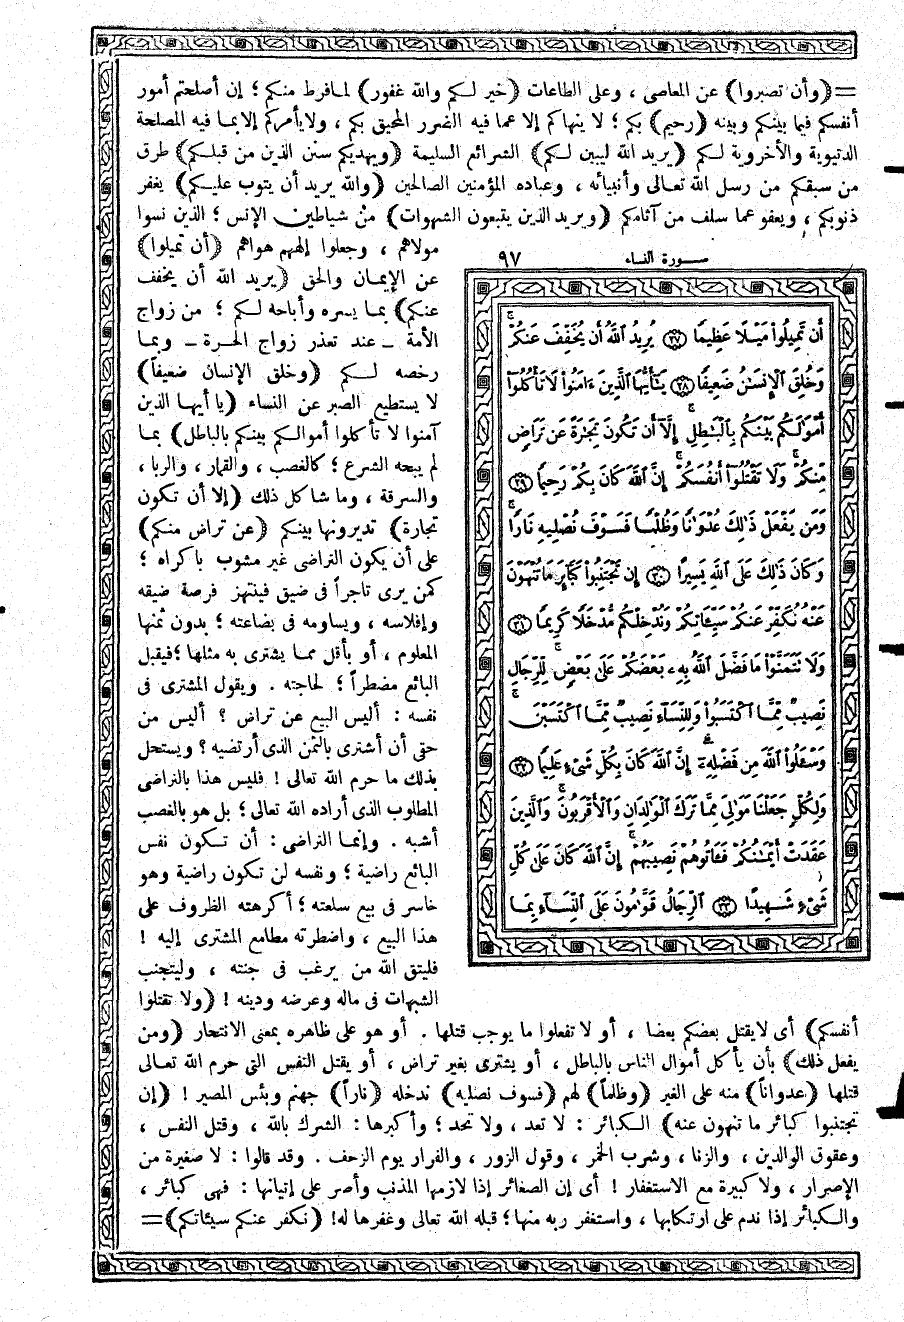 =(وأن تصبروا) عن المعاصى ، وعلى الطاعات (خير لكم والله غفور) لما فرط منكم ؛ إن أصلحتم أمور
أنفسكم فيما بينكم وبينه (رحيم) بكم ؛ لا ينهاكم إلا عما فيه الضرر المحيق بكم ، ولا يأمركم إلا بما فيه المصلحة
الدنيوية والأخروية لكم (يريد الله ليبين لكم) الشرائع السليمة (ويهديكم سنن الذين من قبلكم) طرق
من سبقكم من رسل الله تعالى وأنبيائه ، وعباده المؤمنين الصالحين (والله يريد أن يتوب عليكم) يغفر
ذنوبكم ، ويعفو عما سلف من آثامكم (ويريد الذين يتبعون الشهوات) من شياطين الإنس ؛ الذين نسوا
مولاهم ، وجعلوا إلههم هواهم (أن تميلوا)
عن الإيمان والحق (يريد الله أن يخفف
عنكم) بما يسره وأباحه لكم ؛ من زواج
الأمة ـ عند تعذر زواج الحرة ـ وبما
رخصه لكم (وخلق الإنسان ضعيفاً)
لا يستطيع الصبر عن النساء (يا أيها الذين
آمنوا لا تأكلوا أموالكم بينكم بالباطل) بما
لم يبحه الشرع ؛ كالغصب ، والقمار ، والربا ،
والسرقة ، وما شاكل ذلك (إلا أن تكون
تجارة) تديرونها بينكم (عن تراض منكم)
على أن يكون التراضى غير مشوب بإكراه ؛
كمن يرى تاجراً فى ضيق فينتهز فرصة ضيقه
وإفلاسه ، ويساومه فى بضاعته ؛ بدون ثمنها
المعلوم ، أو بأقل مما يشترى به مثلها ؛ فيقبل
البائع مضطراً ؛ لحاجته . ويقول المشترى فى
نفسه : أليس البيع عن تراض ؟ أليس من
حقى أن أشترى بالثمن الذى أرتضيه ؟ ويستحل
بذلك ما حرم الله تعالى ! فليس هذا بالتراضى
المطلوب الذى أراده الله تعالى ؛ بل هو بالغصب
أشبه . وإنما التراضى : أن تكون نفس
البائع راضية ؛ ونفسه لن تكون راضية وهو
خاسر فى بيع سلعته ؛ أكرهته الظروف على
هذا البيع ، واضطرته مطامع المشترى إليه !
فليتق الله من يرغب فى جنته ، وليتجنب
الشبهات فى ماله وعرضه ودينه ! (ولا تقتلوا
سورة النساء ٩٧
أَن تَمِيلُوا۟ مَيْلًا عَظِيمًا ﴿٢٧﴾ يُرِيدُ ٱللَّهُ أَن يُخَفِّفَ عَنكُمْ
وَخُلِقَ ٱلْإِنسَٰنُ ضَعِيفًا ﴿٢٨﴾ يَٰٓأَيُّهَا ٱلَّذِينَ ءَامَنُوا۟ لَا تَأْكُلُوٓا۟
أَمْوَٰلَكُم بَيْنَكُم بِٱلْبَٰطِلِ إِلَّآ أَن تَكُونَ تِجَٰرَةً عَن تَرَاضٍ
مِّنكُمْ وَلَا تَقْتُلُوٓا۟ أَنفُسَكُمْ إِنَّ ٱللَّهَ كَانَ بِكُمْ رَحِيمًا ﴿٢٩﴾
وَمَن يَفْعَلْ ذَٰلِكَ عُدْوَٰنًا وَظُلْمًا فَسَوْفَ نُصْلِيهِ نَارًا
وَكَانَ ذَٰلِكَ عَلَى ٱللَّهِ يَسِيرًا ﴿٣٠﴾ إِن تَجْتَنِبُوا۟ كَبَآئِرَ مَا تُنْهَوْنَ
عَنْهُ نُكَفِّرْ عَنكُمْ سَيِّـَٔاتِكُمْ وَنُدْخِلْكُم مُّدْخَلًا كَرِيمًا ﴿٣١﴾
وَلَا تَتَمَنَّوْا۟ مَا فَضَّلَ ٱللَّهُ بِهِۦ بَعْضَكُمْ عَلَىٰ بَعْضٍ لِّلرِّجَالِ
نَصِيبٌ مِّمَّا ٱكْتَسَبُوا۟ وَلِلنِّسَآءِ نَصِيبٌ مِّمَّا ٱكْتَسَبْنَ
وَسْـَٔلُوا۟ ٱللَّهَ مِن فَضْلِهِۦٓ إِنَّ ٱللَّهَ كَانَ بِكُلِّ شَىْءٍ عَلِيمًا ﴿٣٢﴾
وَلِكُلٍّ جَعَلْنَا مَوَٰلِىَ مِمَّا تَرَكَ ٱلْوَٰلِدَانِ وَٱلْأَقْرَبُونَ وَٱلَّذِينَ
عَقَدَتْ أَيْمَٰنُكُمْ فَـَٔاتُوهُمْ نَصِيبَهُمْ إِنَّ ٱللَّهَ كَانَ عَلَىٰ كُلِّ
شَىْءٍ شَهِيدًا ﴿٣٣﴾ ٱلرِّجَالُ قَوَّٰمُونَ عَلَى ٱلنِّسَآءِ بِمَا
أنفسكم) أى لا يقتل بعضكم بعضا ، أو لا تفعلوا ما يوجب قتلها . أو هو على ظاهره بمعنى الانتحار (ومن
يفعل ذلك) بأن يأكل أموال الناس بالباطل ، أو يشترى بغير تراض ، أو يقتل النفس التى حرم الله تعالى
قتلها (عدواناً) منه على الغير (وظلماً) لهم (فسوف نصليه) ندخله (ناراً) جهنم وبئس المصير ! (إن
تجتنبوا كبائر ما تنهون عنه) الكبائر : لا تعد ، ولا تحد ؛ وأكبرها : الشرك بالله ، وقتل النفس ،
وعقوق الوالدين ، والزنا ، وشرب الخمر ، وقول الزور ، والفرار يوم الزحف . وقد قالوا : لا صغيرة من
الإصرار ، ولا كبيرة مع الاستغفار ! أى إن الصغائر إذا لازمها المذنب وأصر على إتيانها : فهى كبائر ،
والكبائر إذا ندم على ارتكابها ، واستغفر ربه منها ؛ قبله الله تعالى وغفرها له ! (نكفر عنكم سيئاتكم)=